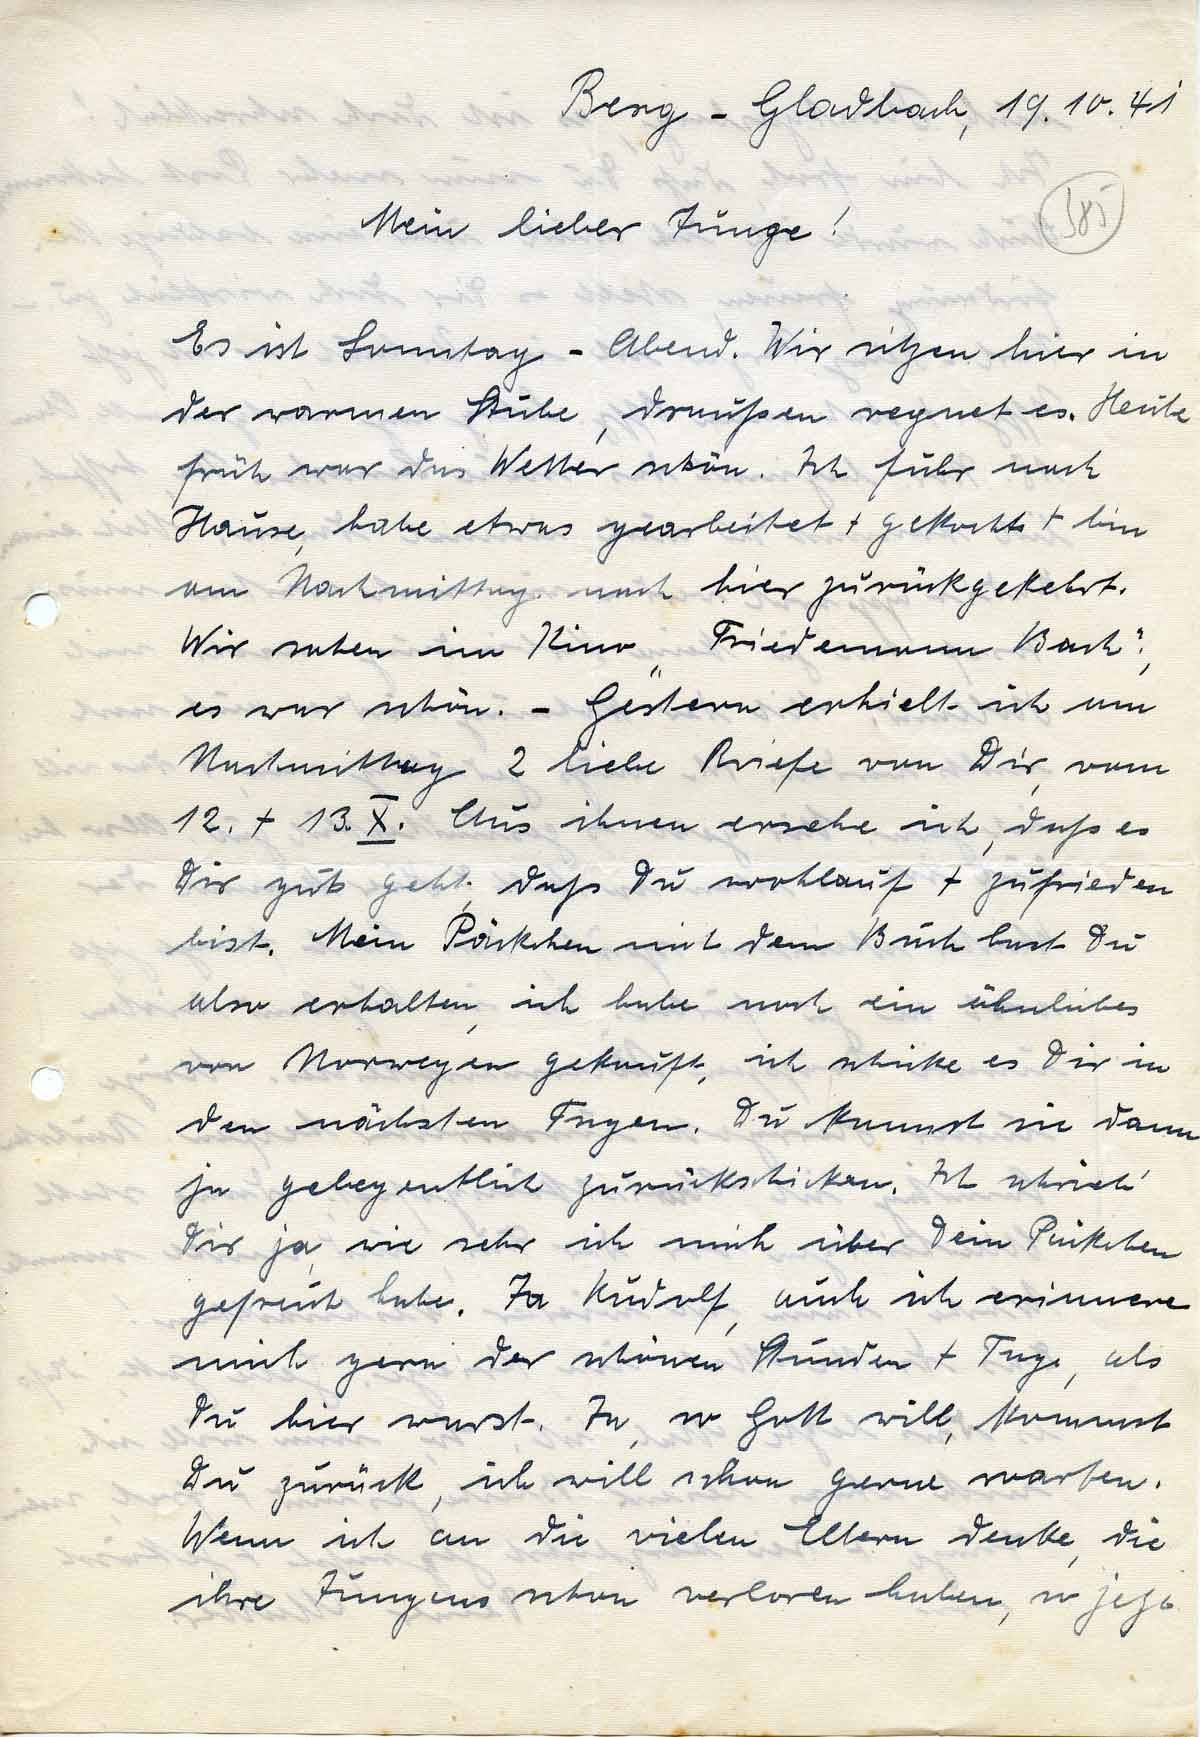 Berg - Gladbach, 19. 10. 41
385
Mein lieber Junge!
Es ist Sonntag - Abend. Wir sitzen hier in
der warmen Stube, draußen regnet es. Heute
früh war das Wetter schön. Ich fuhr nach
Hause, habe etwas gearbeitet + gekocht + bin
am Nachmittag nach hier zurückgekehrt.
Wir sahen im Kino „Friedemann Bach“,
es war schön. - Gestern erhielt ich am
Nachmittag 2 liebe Briefe von Dir, vom
12. + 13. X. Aus ihnen ersehe ich, daß es
Dir gut geht, daß Du wohlauf + zufrieden
bist. Mein Päckchen mit dem Buch hast Du
also erhalten, ich habe noch ein ähnliches
von Norwegen gekauft, ich schicke es Dir in
den nächsten Tagen. Du kannst sie dann
ja gelegentlich zurückschicken. Ich schrieb
Dir ja, wie sehr ich mich über Dein Päckchen
gefreut habe. Ja Rudolf, auch ich erinnere
mich gern der schönen Stunden + Tage, als
Du hier warst. Ja, so Gott will, kommst
Du zurück, ich will schon gerne warten.
Wenn ich an die vielen Eltern denke, die
ihre Jungens schon verloren haben, so